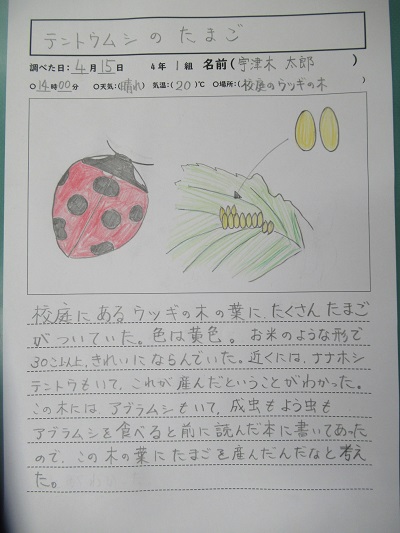 テントウムシの たまご
調べた日：4月15日 4年 1組 名前（宇津木 太郎 ）
○14時00分 ○天気：（晴れ） 気温：（20）℃ ○場所：（校庭のウツギの木 ）
校庭にあるウツギの木の葉に、たくさん たまご
がついていた。色は黄色。お米のような形で
30こ以上、きれいにならんでいた。近くには、ナナホシ
テントウもいて、これが産んだということがわかった。
この木には、アブラムシもいて、成虫もよう虫も
アブラムシを食べると前に読んだ本に書いてあった
ので、この木の葉にたまごを産んだんだなと考え
た。